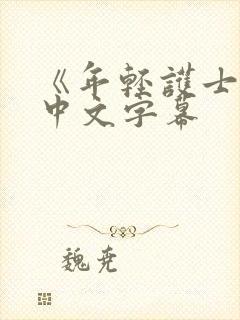 《年輕護士
中文字幕
魏尭